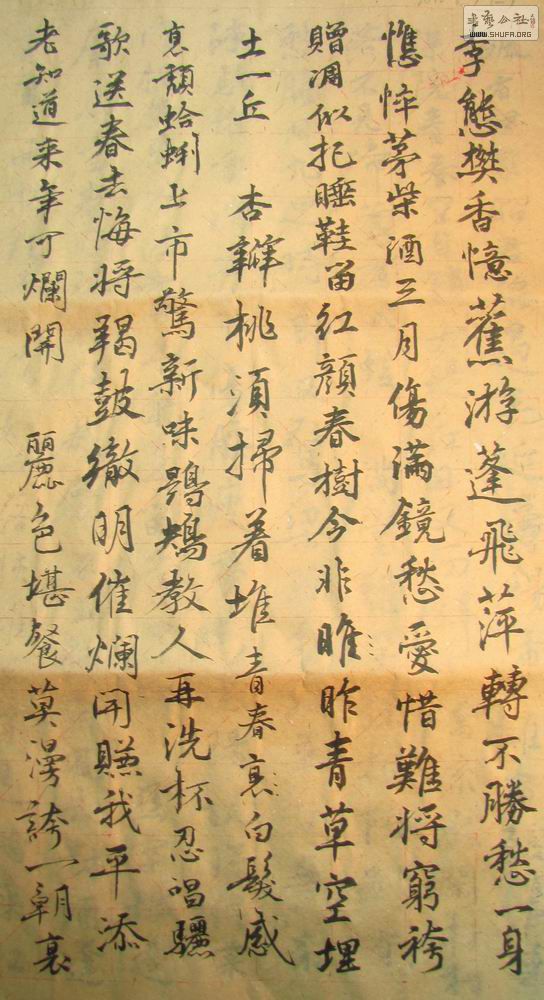 李態樊香憶舊游蓬飛萍轉不勝愁一身
憔悴茅柴酒三月傷滿鏡愁愛惜難將窮袴
贈凋似抱睡鞋留紅顏春樹今非昨青草空埋
土一丘 杏瓣桃須掃着堆青春衰白髮感
衰頹蛤蜊上市驚新味鶗鴂教人再洗杯忍唱驪
歌送春去悔將羯鼓徹明催爛開賺我平添
老知道來年可爛開 麗色堪餐莫漫誇一朝衰
書藝公社
WWW.SHUFA.ORG